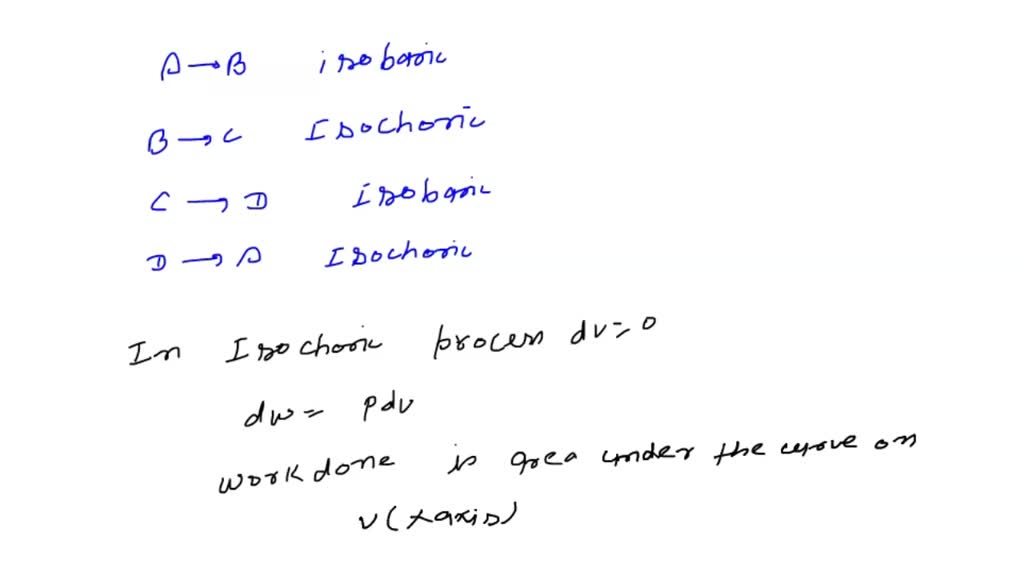 A → B isobaric
B → C Isochoric
C → D Isobaric
D → A Isochoric
In Isochoric process dv=0
dw= pdv
work done is area under the curve on
v(xaxis)